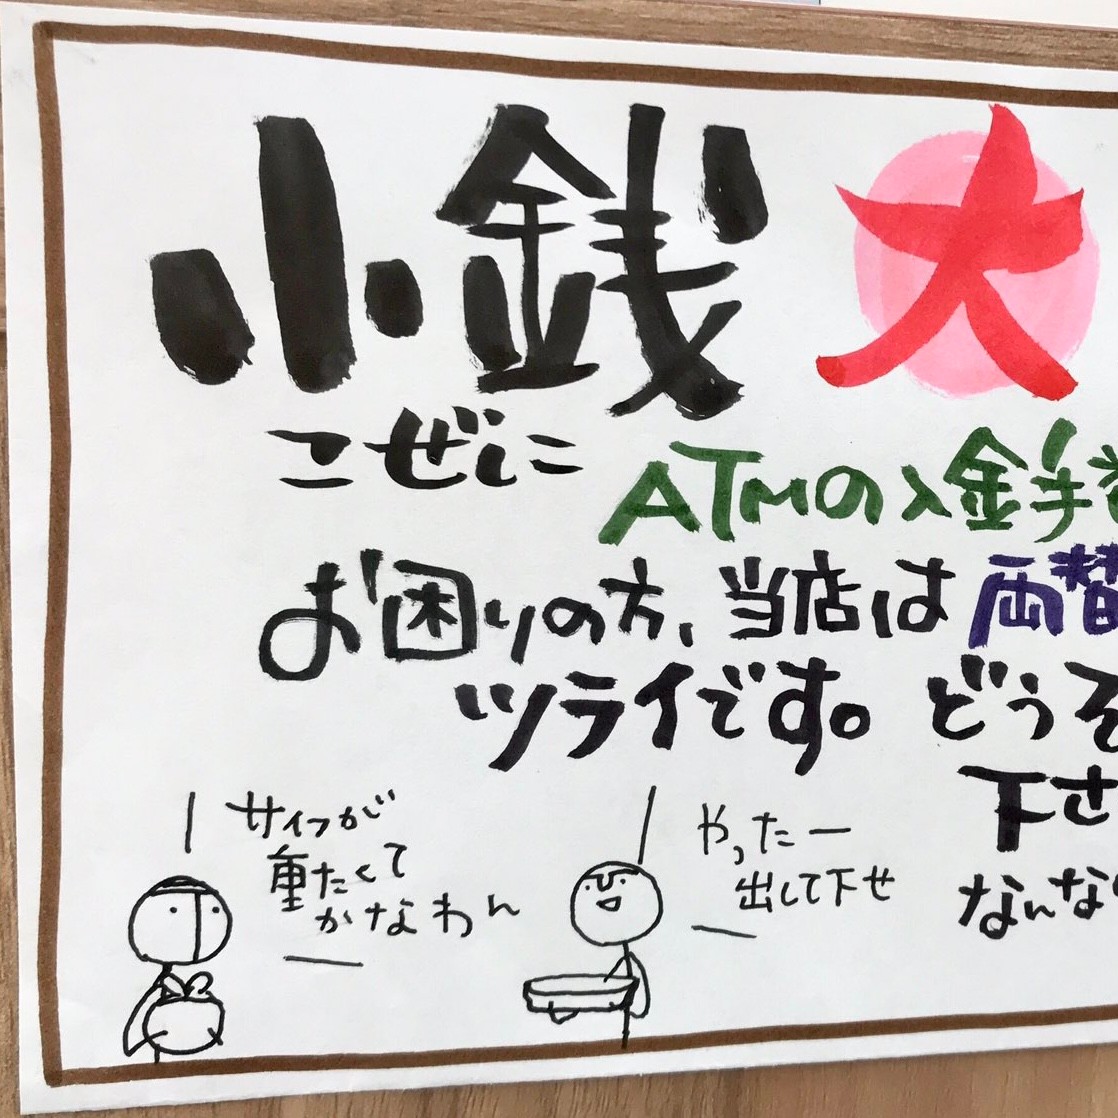 小銭 大
こぜに
ATMの入金手
お困りの方、当店は両替
ツライです。どうぞ
下さ
なんな
サイフが
重たくて
かなわん
やったー
出して下せ